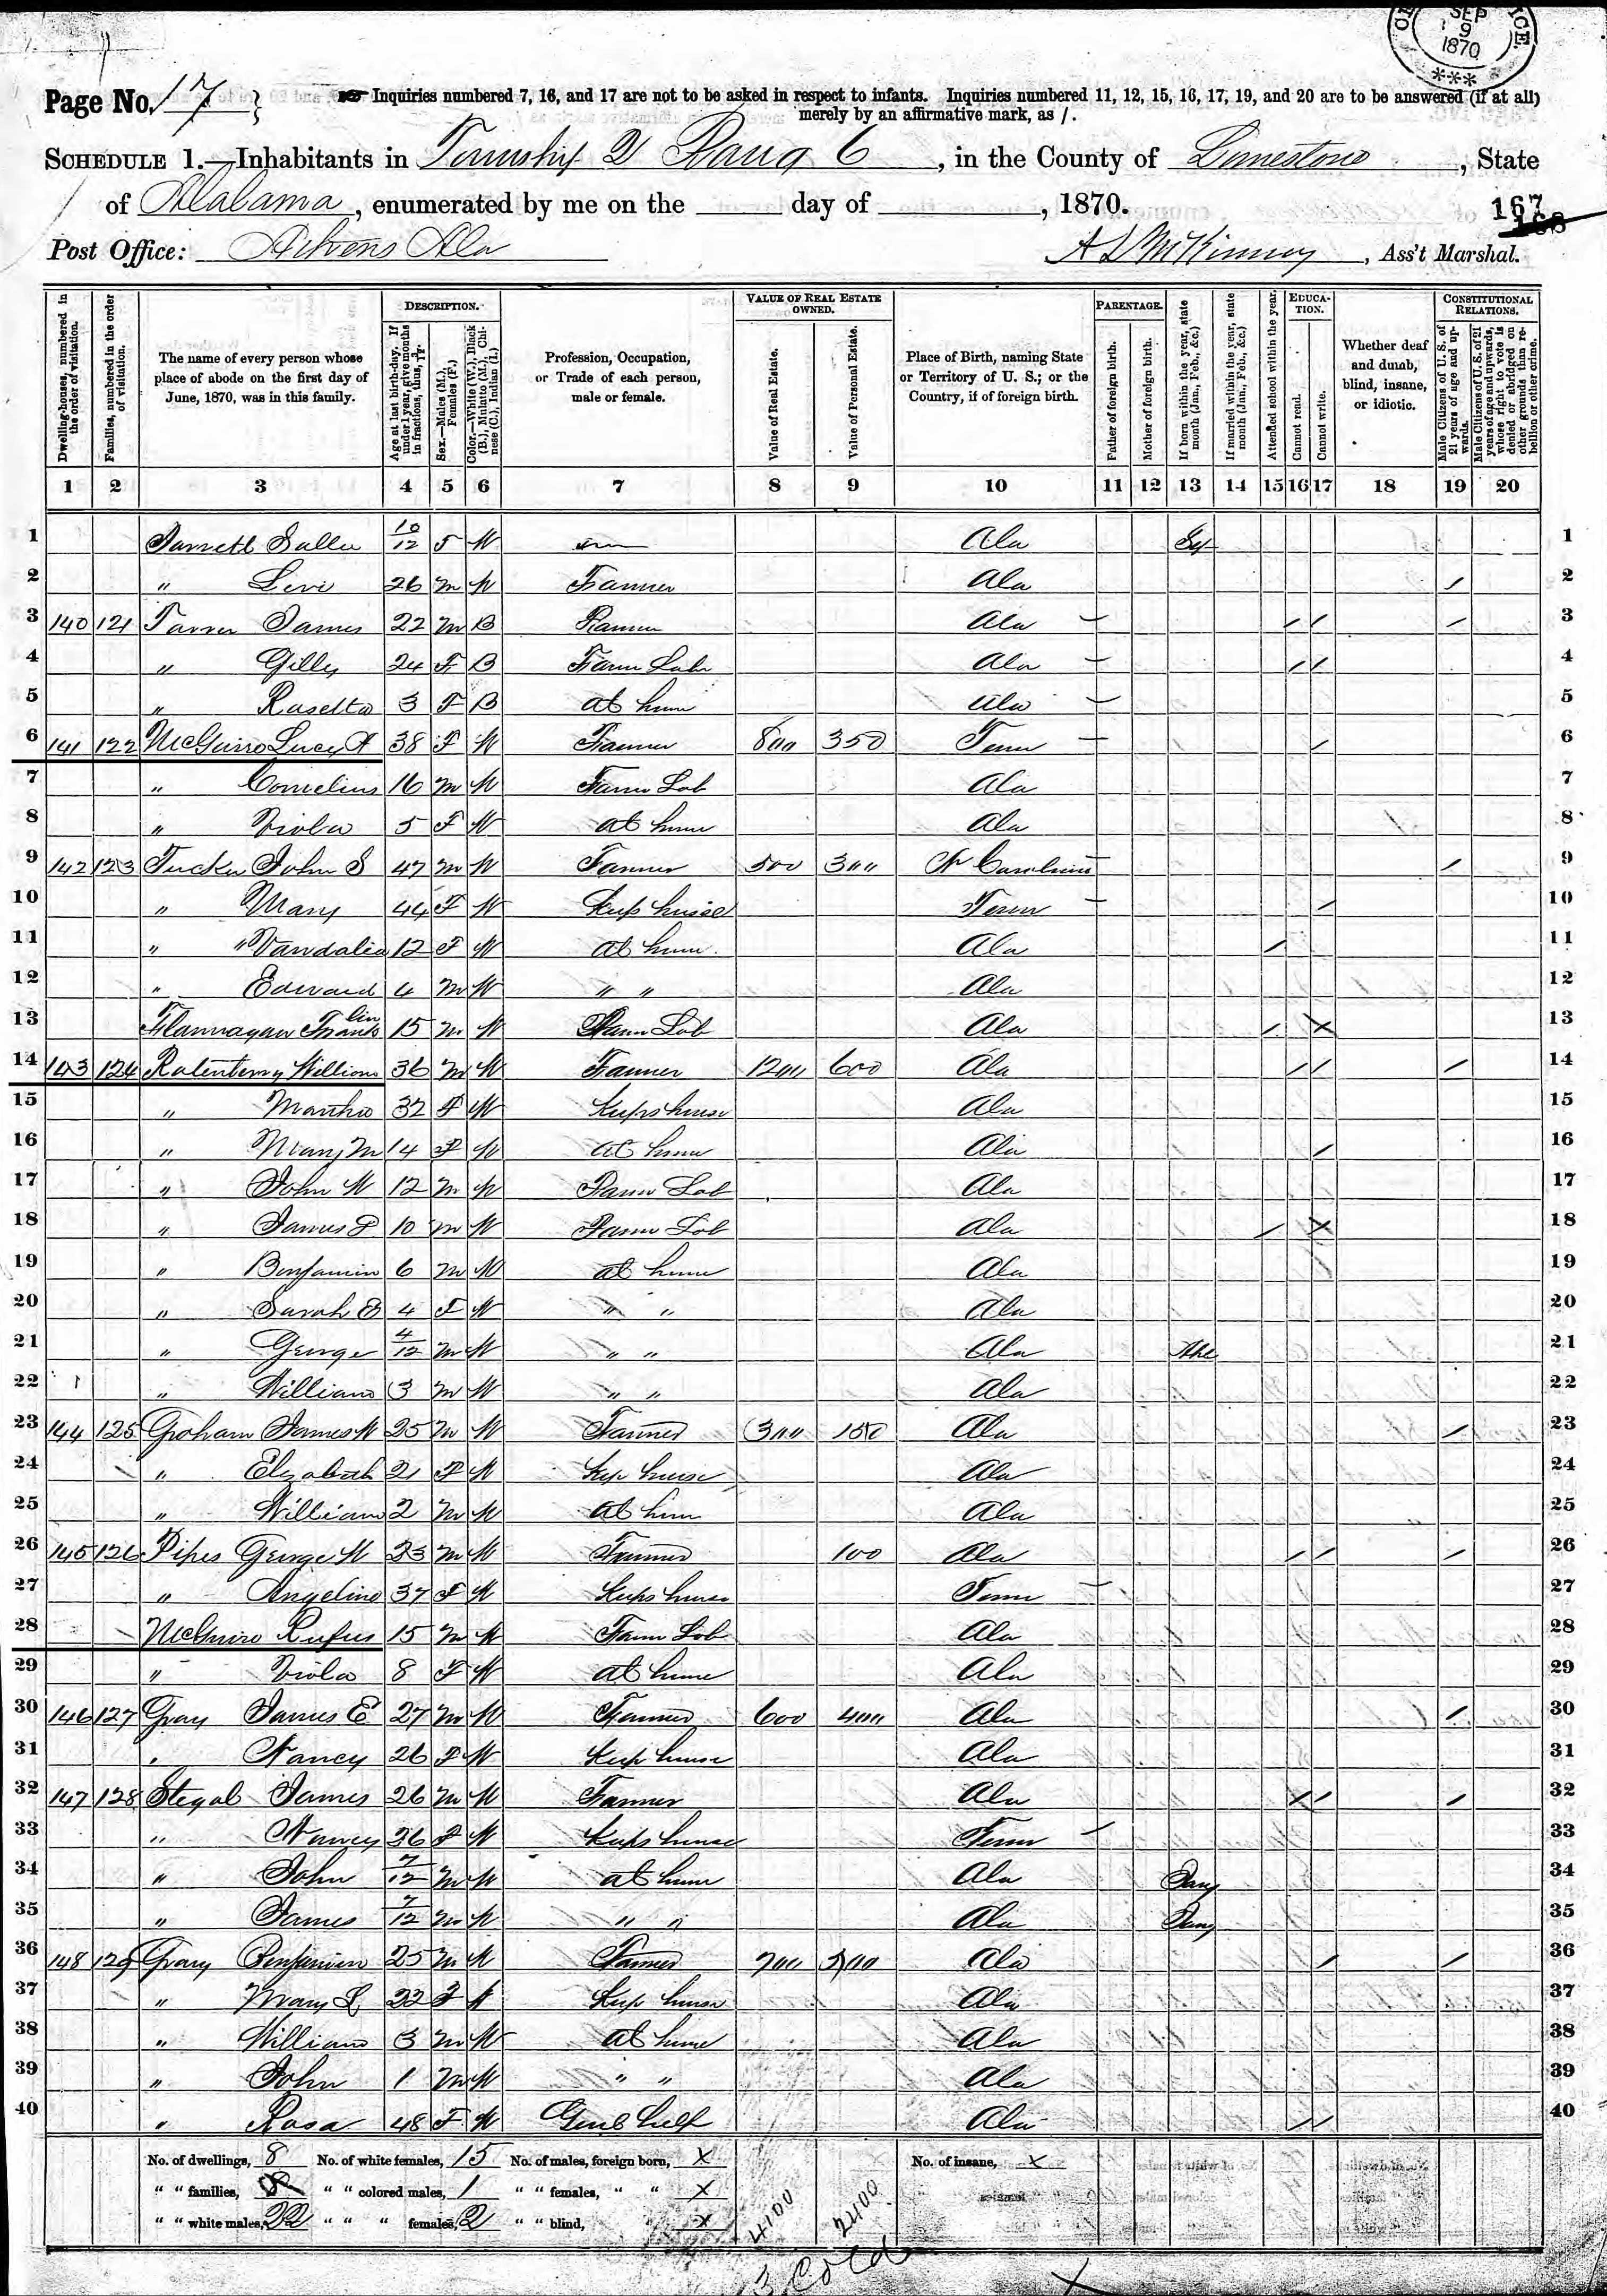 SEP
9
1870
***
Page No. 17
Inquiries numbered 7, 16, and 17 are not to be asked in respect to infants. Inquiries numbered 11, 12, 15, 16, 17, 19, and 20 are to be answered (if at all)
merely by an affirmative mark, as /.
SCHEDULE 1.—Inhabitants in Township 2 Rang 6, in the County of Limestone, State
of Alabama, enumerated by me on the ____ day of ____, 1870.
167
168
Post Office: Athens Ala A D McKinney, Ass't Marshal.
Dwelling-houses, numbered in the order of visitation.
Families, numbered in the order of visitation.
The name of every person whose place of abode on the first day of June, 1870, was in this family.
DESCRIPTION.
Age at last birth-day. If under 1 year, give months in fractions, thus, 3/12.
Sex.—Males (M.), Females (F.)
Color.—White (W.), Black (B.), Mulatto (M.), Chinese (C.), Indian (I.)
Profession, Occupation, or Trade of each person, male or female.
VALUE OF REAL ESTATE OWNED.
Value of Real Estate.
Value of Personal Estate.
Place of Birth, naming State or Territory of U. S.; or the Country, if of foreign birth.
PARENTAGE.
Father of foreign birth.
Mother of foreign birth.
If born within the year, state month (Jan., Feb., &c.)
If married within the year, state month (Jan., Feb., &c.)
Attended school within the year.
EDUCATION.
Cannot read.
Cannot write.
Whether deaf and dumb, blind, insane, or idiotic.
CONSTITUTIONAL RELATIONS.
Male Citizens of U. S. of 21 years of age and upwards.
Male Citizens of U. S. of 21 years of age and upwards, whose right to vote is denied or abridged on other grounds than rebellion or other crime.
1 2 3 4 5 6 7 8 9 10 11 12 13 14 15 16 17 18 19 20
1 10/12 F W Ala 1
2 " Levi 26 M W Farmer Ala / 2
3 140 121 James 22 M B Farmer Ala / / / / 3
4 " Gilly 24 F B Farm Labr Ala / / / 4
5 " Rosetta 3 F B at home Ala / 5
6 141 122 McGuire Lucy A 38 F W Farmer 800 350 Tenn / / 6
7 " Cornelius 16 M W Farm Lab Ala 7
8 " Viola 5 F W at home Ala 8
9 142 123 Tucker John S 47 M W Farmer 500 300 N Carolina / / 9
10 " Mary 44 F W Keeps house Tenn / / 10
11 " " Vandalia 12 F W at home Ala / 11
12 " Edward 4 M W " " Ala 12
13 Flannagan Franklin 15 M W Farm Lab Ala / X 13
14 143 124 William 36 M W Farmer 1200 600 Ala / / / 14
15 " Martha 32 F W Keeps house Ala 15
16 " Mary M 14 F W at home Ala / 16
17 " John W 12 M W Farm Lab Ala 17
18 " James P 10 M W Farm Lab Ala / X 18
19 " Benjamin 6 M W at home Ala 19
20 " Sarah E 4 F W " " Ala 20
21 " George 4/12 M W " " Ala 21
22 " William 3 M W " " Ala 22
23 144 125 Graham James W 25 M W Farmer 300 150 Ala / 23
24 " Elizabeth 21 F W Kep house Ala 24
25 " William 2 M W at hom Ala 25
26 145 126 Pipes George W 23 M W Farmer 100 Ala / / / 26
27 " Angeline 37 F W Keeps house Tenn / 27
28 McGuire Rufus 15 M W Farm Lab Ala 28
29 " Viola 8 F W at home Ala 29
30 146 127 Gray James E 27 M W Farmer 600 400 Ala / 30
31 " Nancy 26 F W Keep house Ala 31
32 147 128 Stegal James 26 M W Farmer Ala / / / 32
33 " Nancy 36 F W Keeps house Tenn / 33
34 " John 7/12 M W at home Ala 34
35 " James 7/12 M W " " Ala 35
36 148 129 Gray Benjamin 25 M W Farmer 700 Ala / / 36
37 " Mary L 22 F W Keep house Ala 37
38 " William 3 M W at home Ala 38
39 " John 1 M W " " Ala 39
40 " Rosa 48 F W Genl help Ala / / 40
No. of dwellings, 8 No. of white females, 15 No. of males, foreign born, X No. of insane, X
" " families, 8 " " colored males, 1 " " females, " " X
" " white males, 22 " " " females, 2 " " blind, X
4100 2400
3 Cold
X